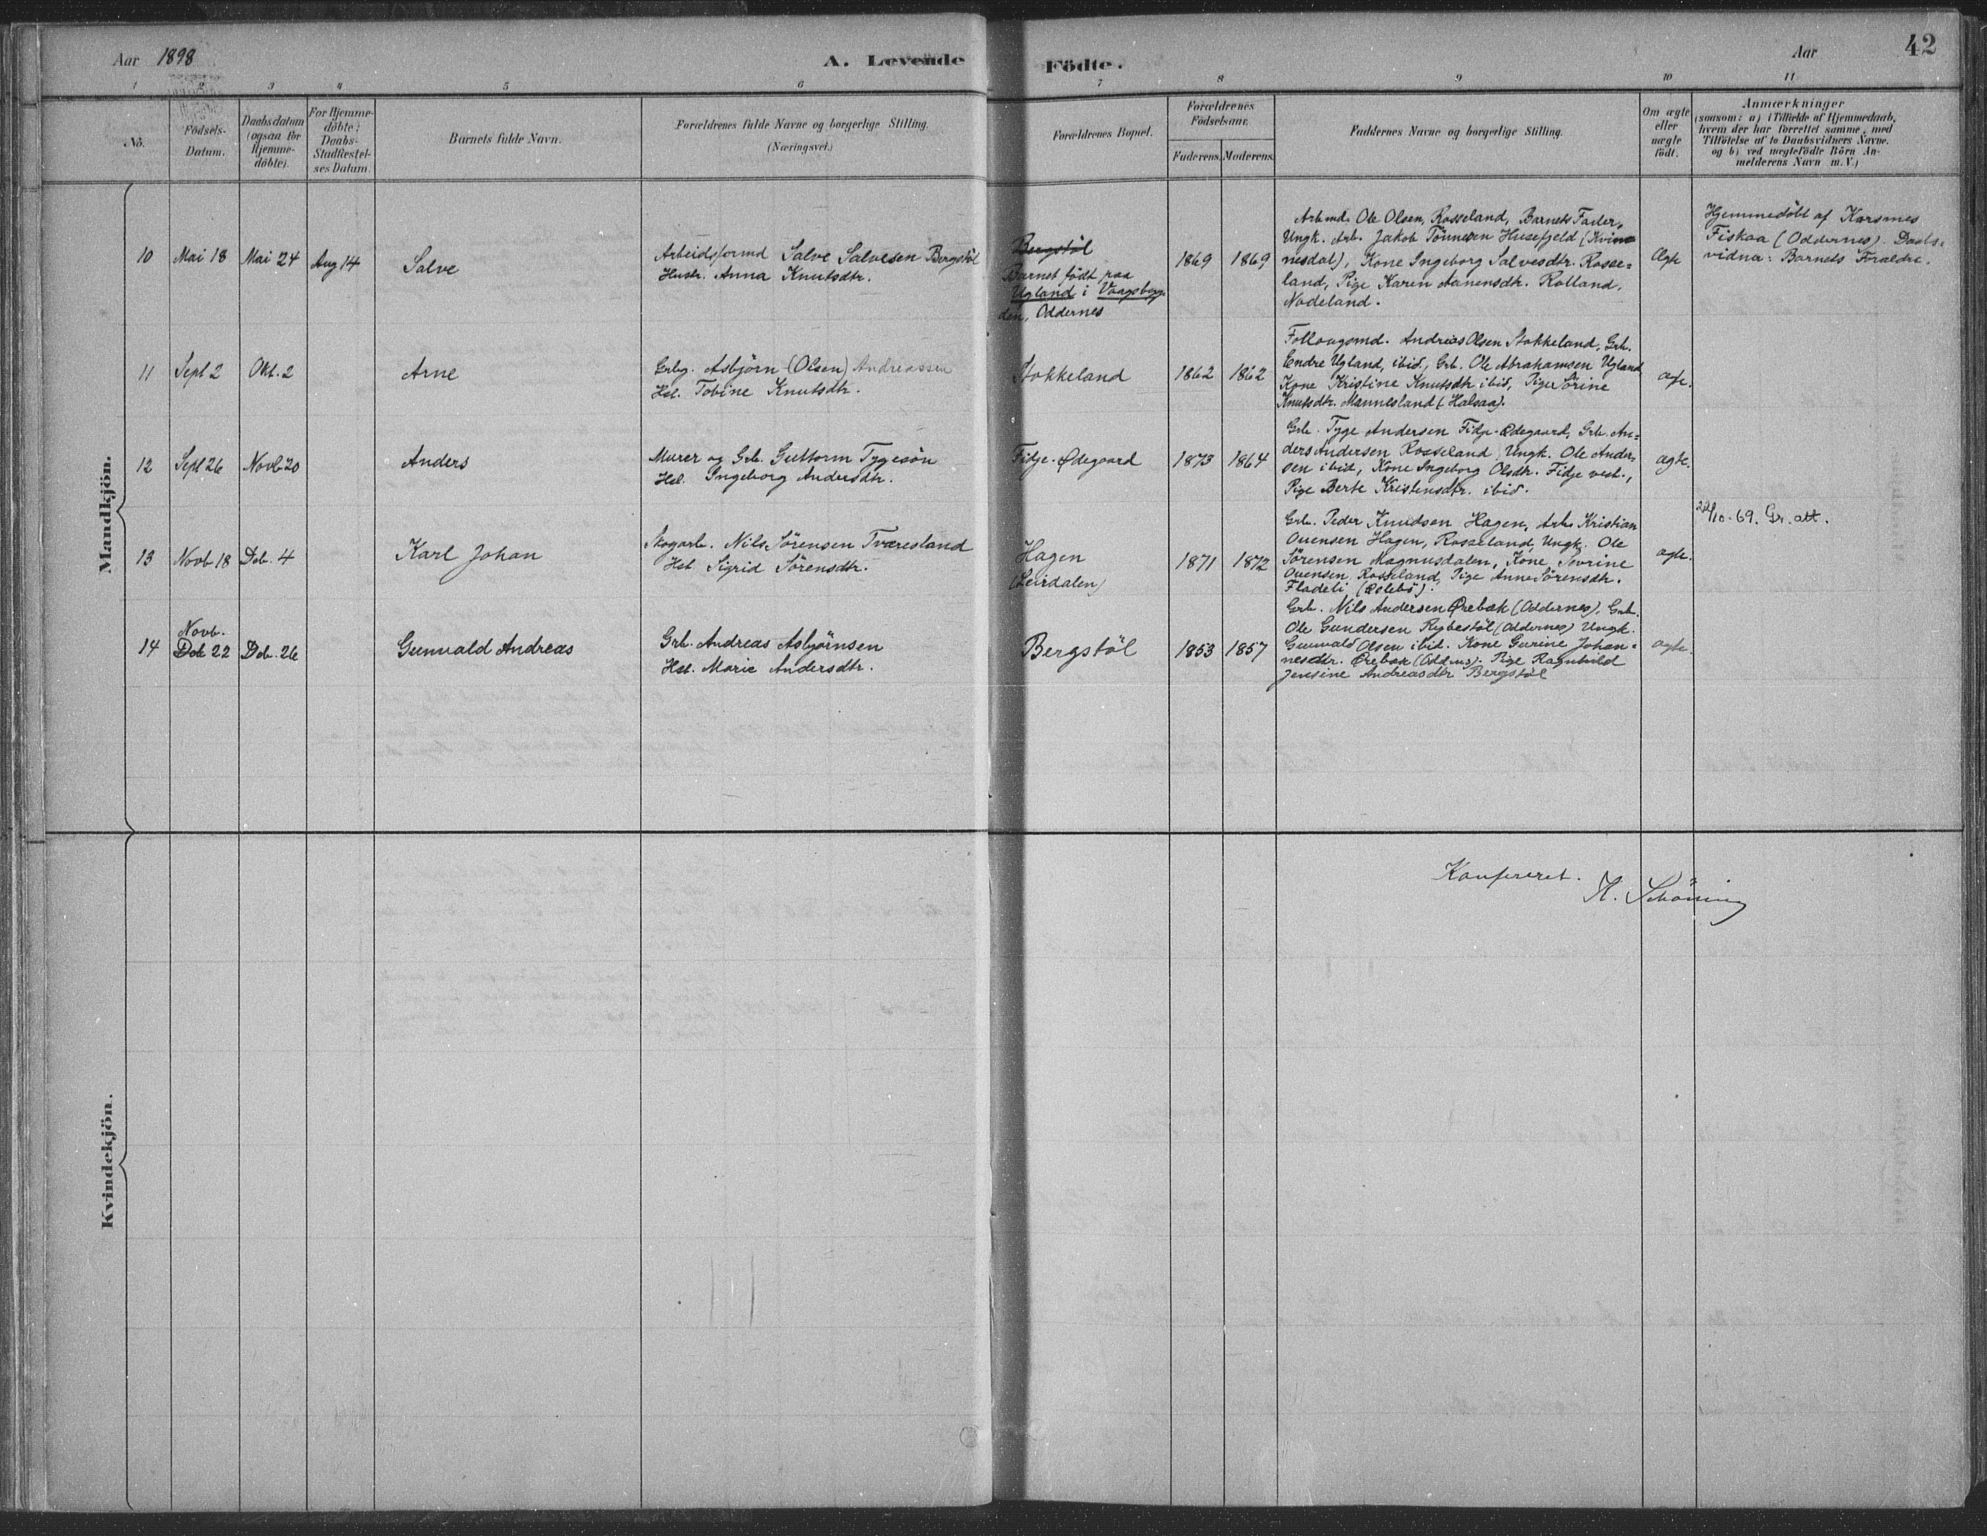 Aar 1898
A. Levende Födte.
Aar
42
1 2 3 4 5 6 7 8 9 10 11
No.
Födsels-
Datum.
Daabsdatum
(ogsaa for
Hjemme-
döbte).
For Hjemme-
döbte:
Daabs-
Stadfæstel-
ses Datum.
Barnets fulde Navn.
Forældrenes fulde Navne og borgerlige Stilling.
(Næringsvei.)
Forældrenes Bopæl.
Forældrenes
Födselsaar.
Faderens. Moderens.
Faddernes Navne og borgerlige Stilling.
Om ægte
eller
uægte
født.
Anmærkninger
(saasom: a) i Tilfælde af Hjemmedaab,
hvem der har forrettet samme, med
Tilføielse af to Daabsvidners Navne.
og b) ved uægtefødte Börn An-
melderens Navn m. V.)
Mandkjön.
10 Mai 18 Mai 24 Aug 14 Salve
Arbeidsformd Salve Salvesen Bergstöl
Hustr. Anna Knutsdtr.
Bergstöl
Barnet födt paa
Ugland i Vaagsbyg-
den, Oddernes
1869 1869
Arbmd. Ole Olsen, Rosseland, Barnets Fader,
Ungk. Arb. Jakob Tönnesen Husefjeld (Kvin
nesdal), Kone Ingeborg Salvesdtr. Rosse-
land, Pige Karen Aanensdtr. Rolland,
Nodeland.
Ægte
Hjemmedöbt af Karsmes
Fiskaa (Oddernes). Daabs-
vidna: Barnets Foraldre.
11 Sept 2 Okt. 2 Arne
Grbg. Asbjörn (Olsen) Andreassen
Hst. Tobine Knutsdtr.
Stokkeland
1862 1862
Follaugsmd. Andreas Olsen Stokkeland, Grb.
Endre Ugland, ibid., Grb. Ole Abrahamsen Ugland
Kone Kristine Knutsdtr ibid, Pige Sörine
Knutsdtr. Mannesland (Halsaa).
ægte.
12 Sept 26 Novb 20 Anders
Murer og Grb. Guttorm Tygesön
Hst. Ingeborg Andersdtr.
Fidje-Ødegaard
1873 1864
Grb. Tyge Andersen Fidje-Ødegaard, Grb. An-
ders Andersen Rosseland, Ungk. Ole Ander-
sen ibid, Kone Ingeborg Olsdtr. Fidje vest.,
Pige Berte Kristensdtr. ibid.
ægte.
13 Novb 18 Deb. 4 Karl Johan
Skogarb. Nils Sörensen Tværesland
Hst. Sigrid Sörensdtr.
Hagen
(Leirdalen)
1871 1872
Grb. Peder Knudsen Hagen, Arb. Kristian
Ouensen Hagen, Rosseland, Ungk. Ole
Sörensen Magnusdalen, Kone Severine
Ouensen Rosseland, Pige Anne Sörensdtr.
Fladeli (Øslebö).
ægte.
22/10-69. Gr. att.
14 Novb.
Deb 22 Deb. 26 Gunvald Andreas
Grb. Andreas Asbjørnsen
Hst. Marie Andersdtr.
Bergstöl
1853 1857
Grb. Nils Andersen Ørebæk (Oddernes), Grb.
Ole Gundersen Rybestöl (Oddernes) Ungk.
Gunvald Olsen ibid. Kone Gurine Johan-
nesdtr. Ørebæk (Oddrns). Pige Ragnhild
Jensine Andreasdtr Bergstöl
ægte.
Kvindekjön.
Konfereret.
H. Schöning